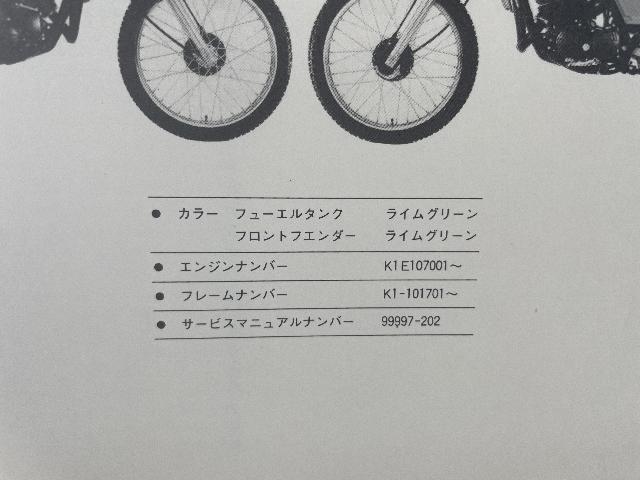 ● カラー フューエルタンク ライムグリーン
フロントフエンダー ライムグリーン
● エンジンナンバー K1E107001〜
● フレームナンバー K1-101701〜
● サービスマニュアルナンバー 99997-202